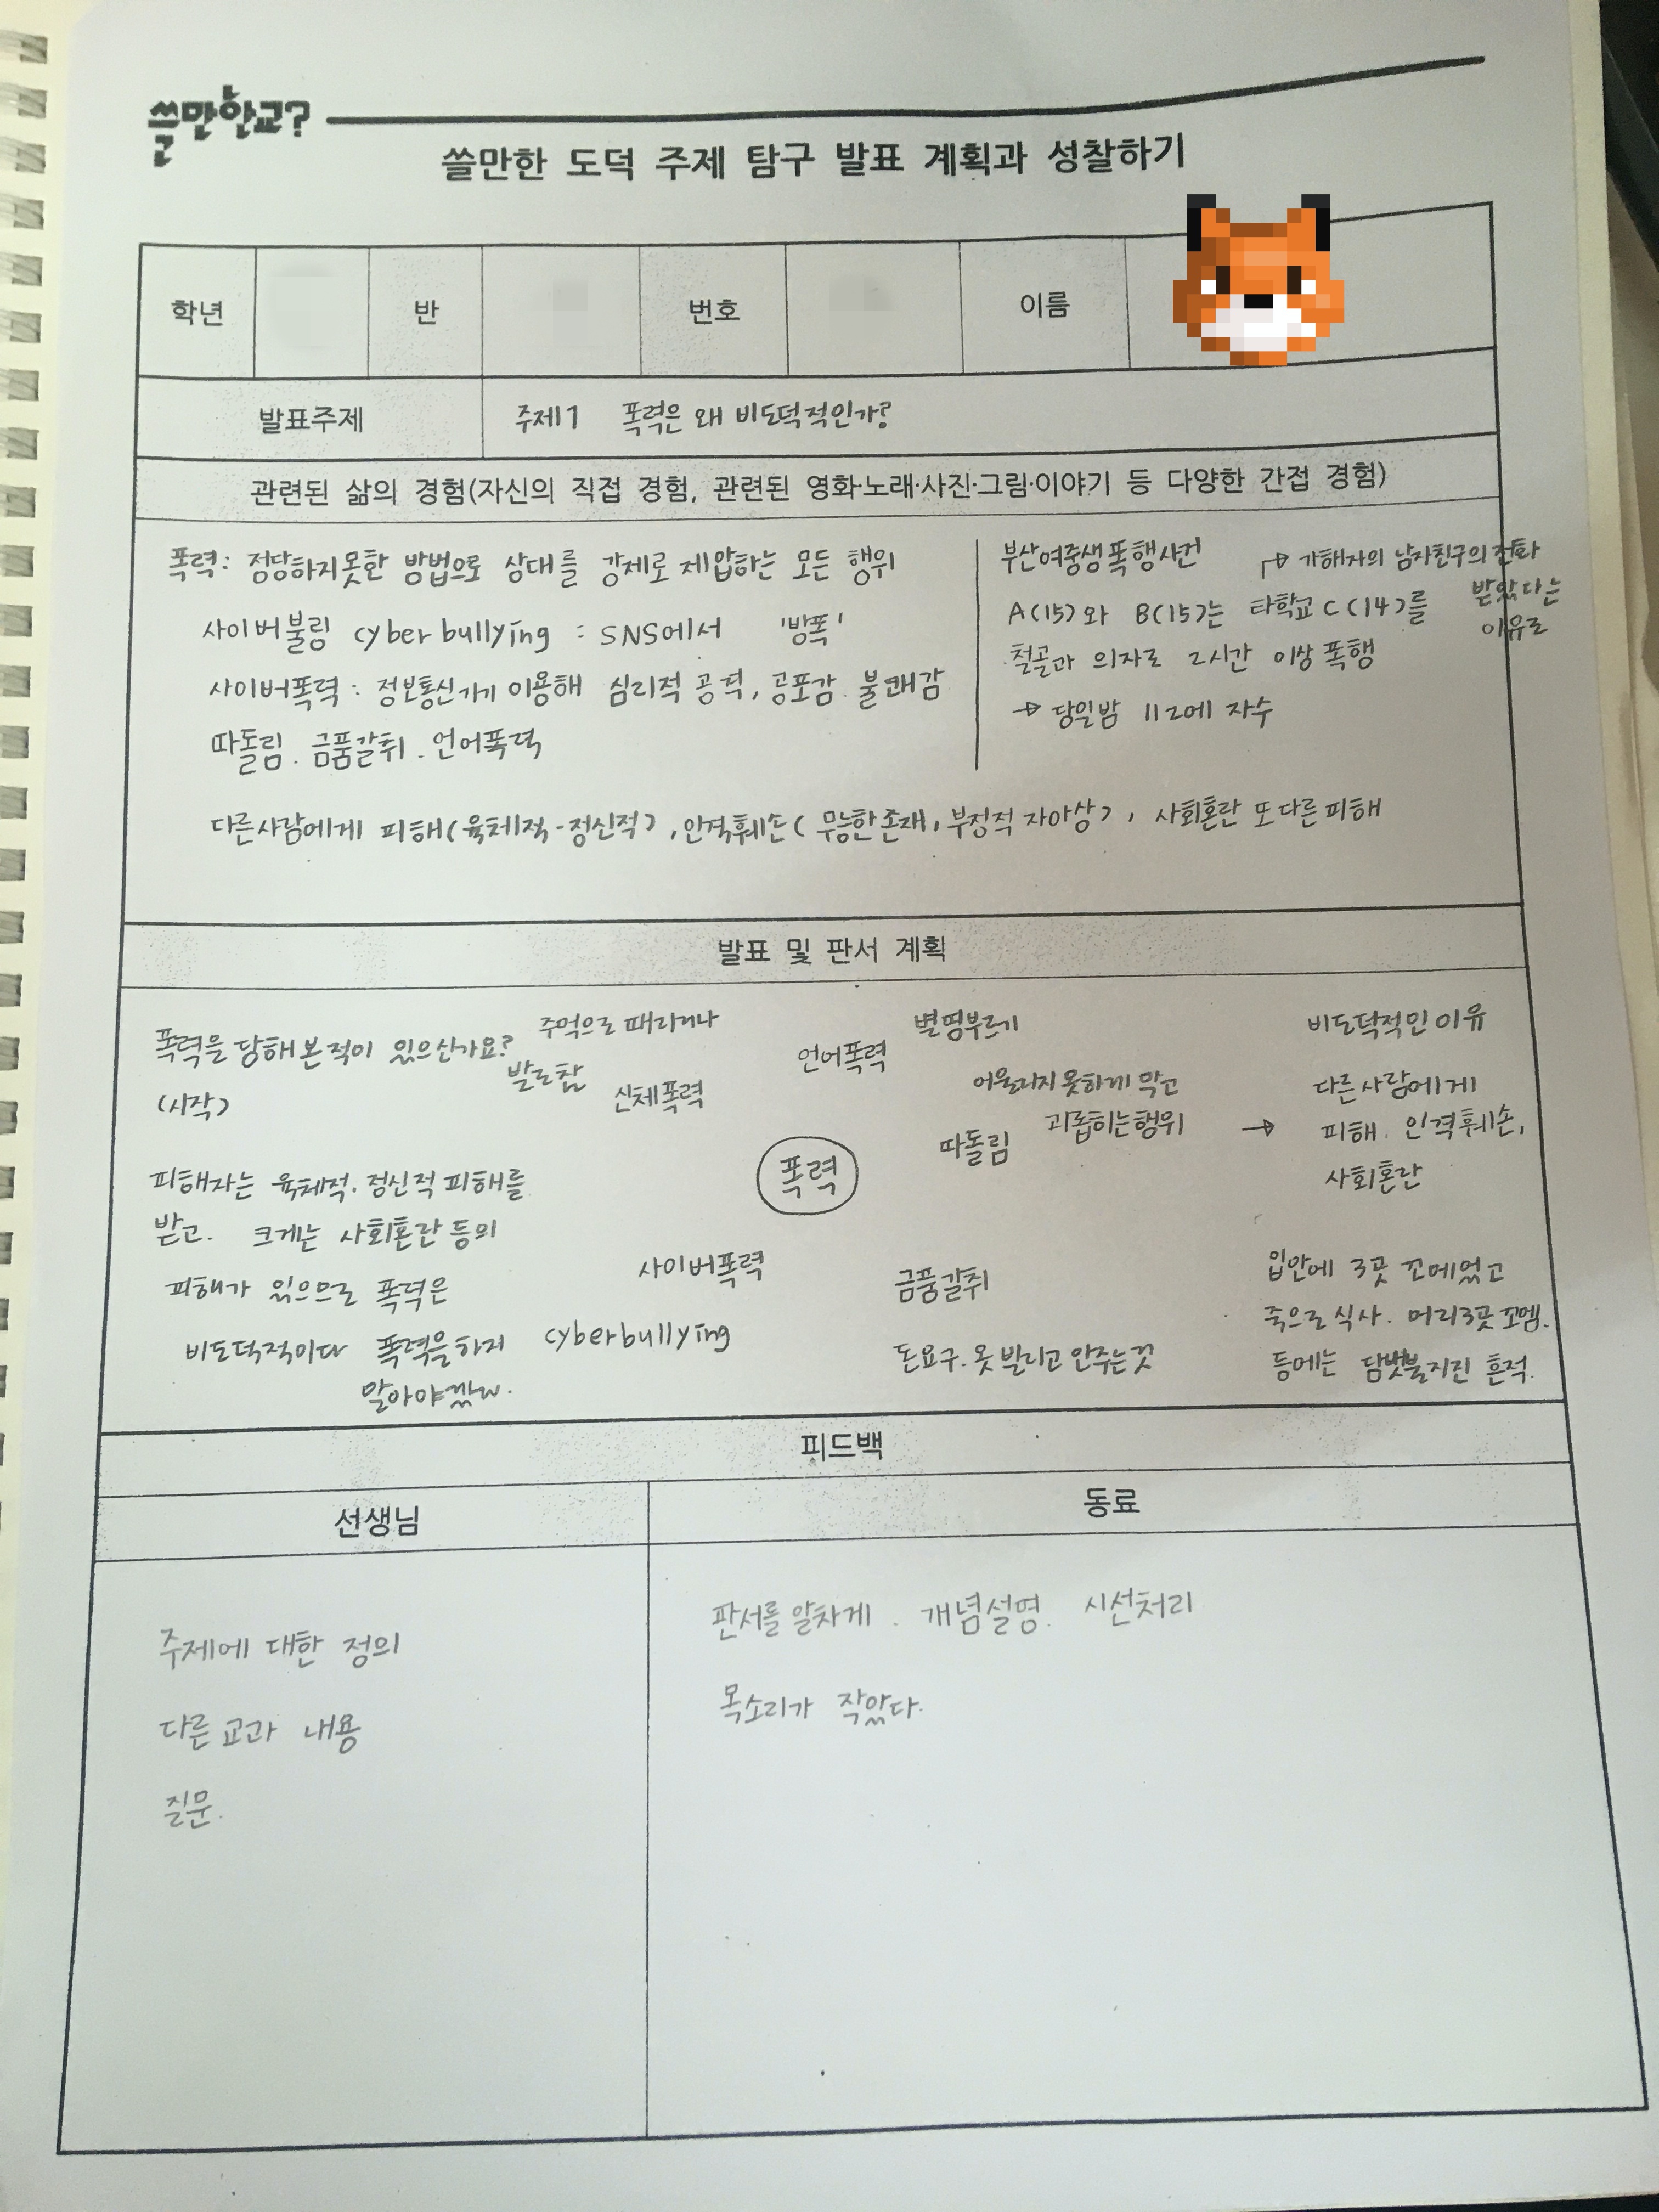 쓸만한교?
쓸만한 도덕 주제 탐구 발표 계획과 성찰하기
학년 반 번호 이름
발표주제 주제1 폭력은 왜 비도덕적인가?
관련된 삶의 경험(자신의 직접 경험, 관련된 영화·노래·사진·그림·이야기 등 다양한 간접 경험)
폭력: 정당하지못한 방법으로 상대를 강제로 제압하는 모든 행위
사이버불링 cyber bullying : SNS에서 '방폭'
사이버폭력 : 정보통신기기 이용해 심리적 공격, 공포감. 불쾌감
따돌림. 금품갈취. 언어폭력
부산여중생폭행사건
→ 가해자의 남자친구의 전화
받았다는
이유로
A(15)와 B(15)는 타학교 C(14)를
철골과 의자로 2시간 이상 폭행
→ 당일밤 112에 자수
다른사람에게 피해(육체적-정신적), 인격훼손(무능한존재, 부정적 자아상), 사회혼란 또다른피해
발표 및 판서 계획
폭력을 당해본적이 있으신가요?
(시작)
피해자는 육체적. 정신적 피해를
받고. 크게는 사회혼란 등의
피해가 있으므로 폭력은
비도덕적이다 폭력을하지
말아야겠
주먹으로 때리거나
발로참
신체폭력
언어폭력
별명부르기
어울리지 못하게 막고
괴롭히는행위
따돌림
폭력
사이버폭력
cyberbullying
금품갈취
돈요구. 옷 빌리고 안주는것
비도덕적인 이유
→ 다른 사람에게
피해. 인격훼손,
사회혼란
입안에 3곳 꼬메었고
죽으로 식사. 머리3곳 꼬멤.
등에는 담뱃불지진 흔적.
피드백
선생님
주제에 대한 정의
다른 교과 내용
질문.
동료
판서를 알차게. 개념설명. 시선처리
목소리가 작았다.